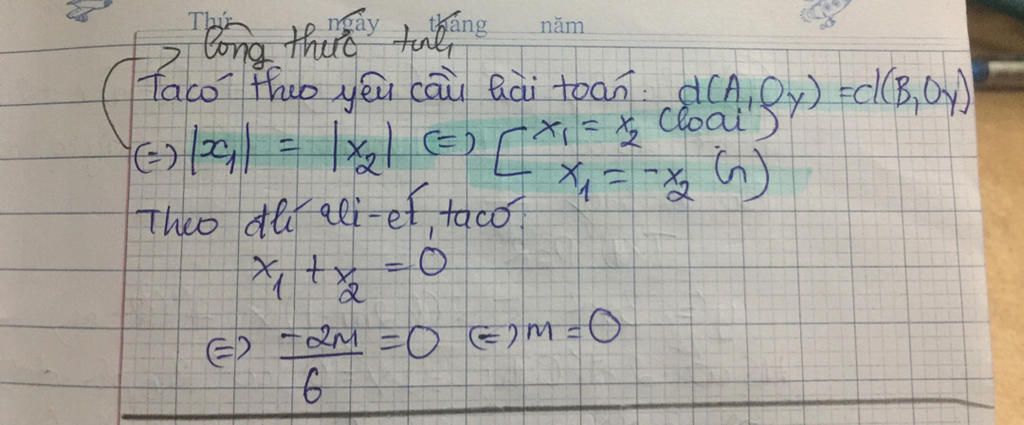 Thứ ngày tháng năm
Công thức tính
Ta có theo yêu cầu bài toán: d(A,Oy) = d(B,Oy)
(=) |x₁| = |x₂| (=) [ x₁ = x₂ (loại)
x₁ = -x₂ (n)
Theo đlí Vi-ét, ta có:
x₁ + x₂ = 0
(=) -2m/6 = 0 (=) m = 0